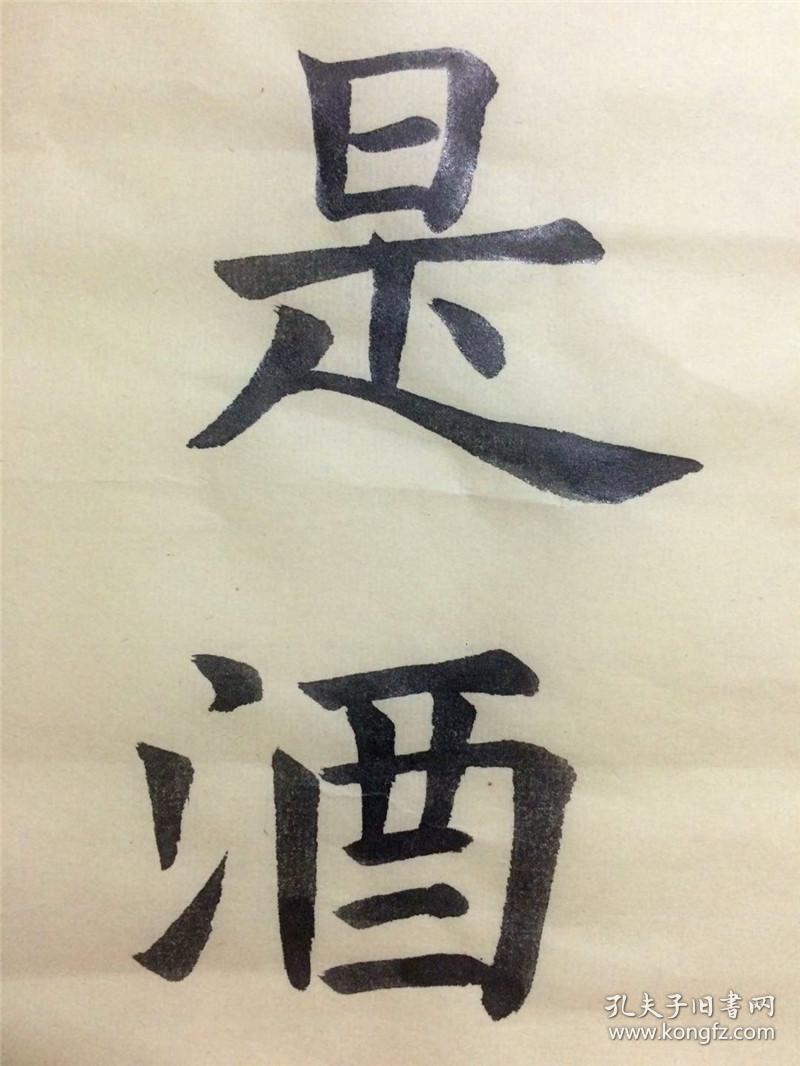 是
酒
孔夫子旧書网
www.kongfz.com